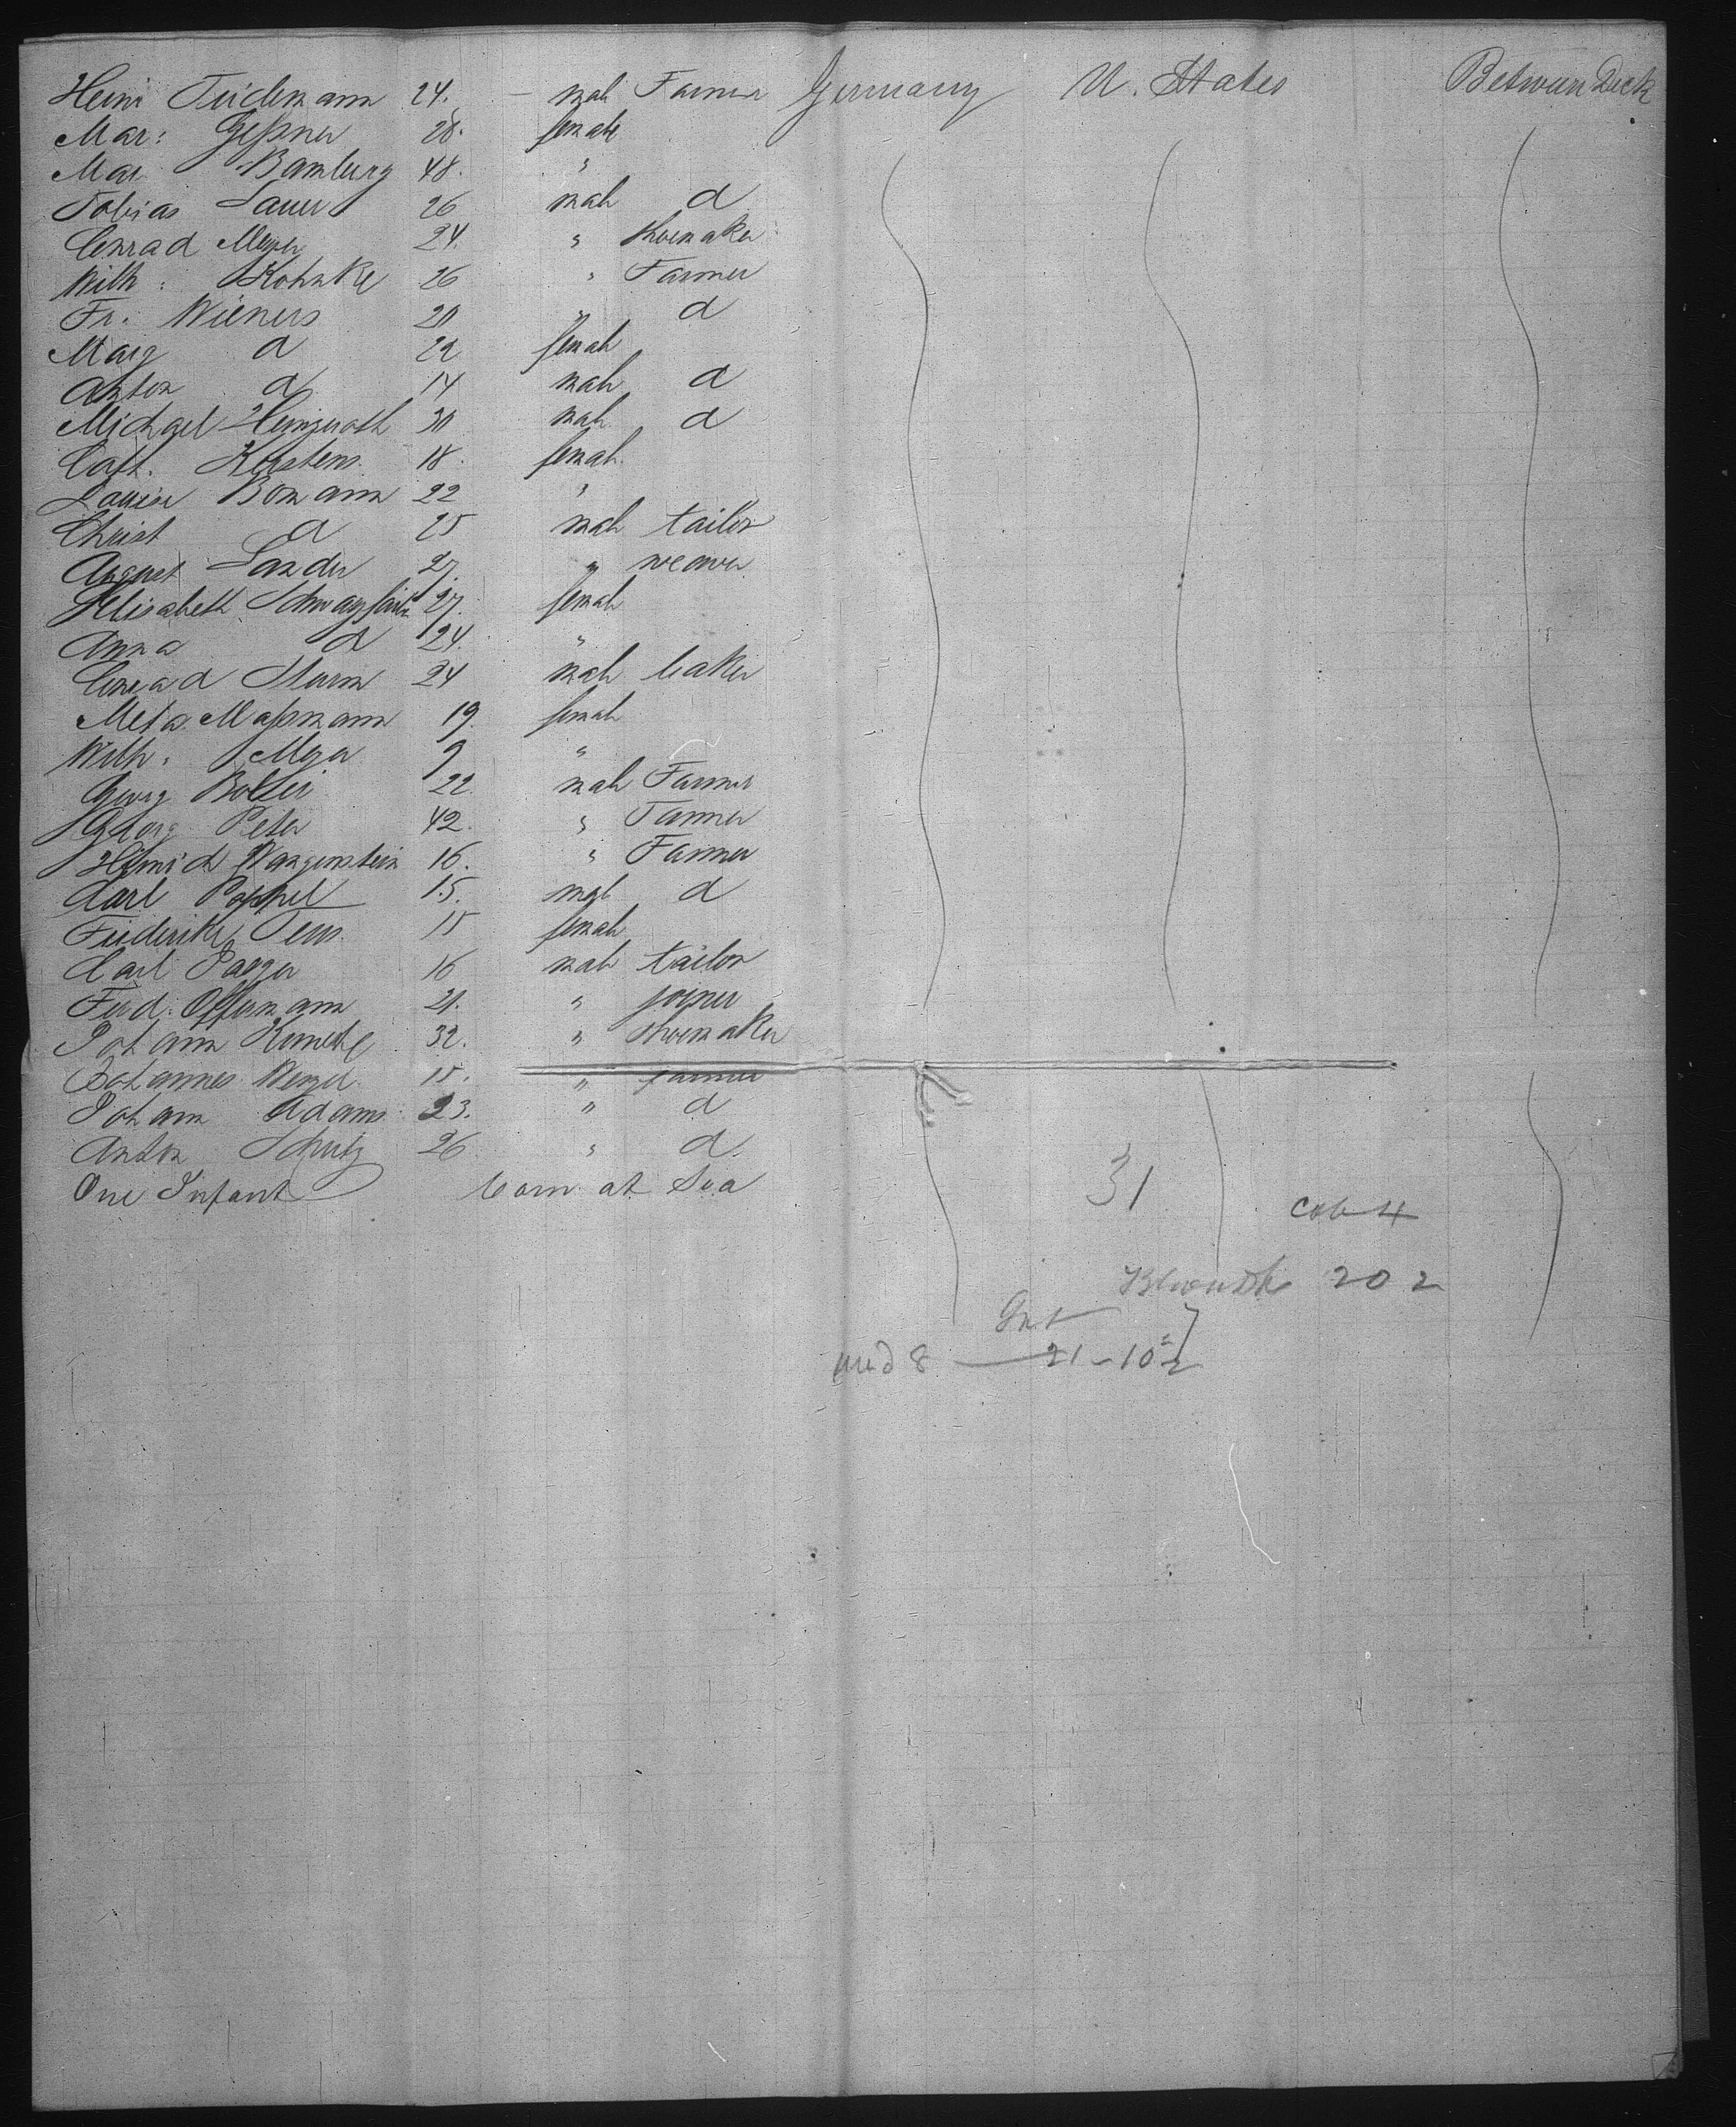 Heinr Tiedemann 24. — male Farmer Germany U. States Between Deck
Mar: Geßner 28. female
Mar Bamburg 48. "
Tobias Lauer 26 male d
Conrad Meyer 24. " shoemaker
Wilh: Kohnke 26 " Farmer
Fr. Wieners 20 " d
Marg d 22 female
Anton d 14 male d
Michael 30 male d
Cath. Kerstens 18. female
Louise Bomann 22 "
Christ d 25 male tailor
August Lander 27. " weaver
Elisabeth 27. female
Anna d 24. "
Conrad Sturm 24 male baker
Meta Maßmann 19. female
Wilh. Meyer 9 "
Georg 22 male Farmer
Georg Peter 42. " Farmer
Heinrich 16. " Farmer
Carl Poppel 15. male d
Friederike 15 female
Carl 16 male tailor
Ferd. Offermann 21. " joiner
Johann 32. " shoemaker
Johannes Wenzel 15. " farmer
Johann Adams 23. " d
Anton Schulz 26 " d.
One Infant born at Sea
31
Cab 4
202
21-10